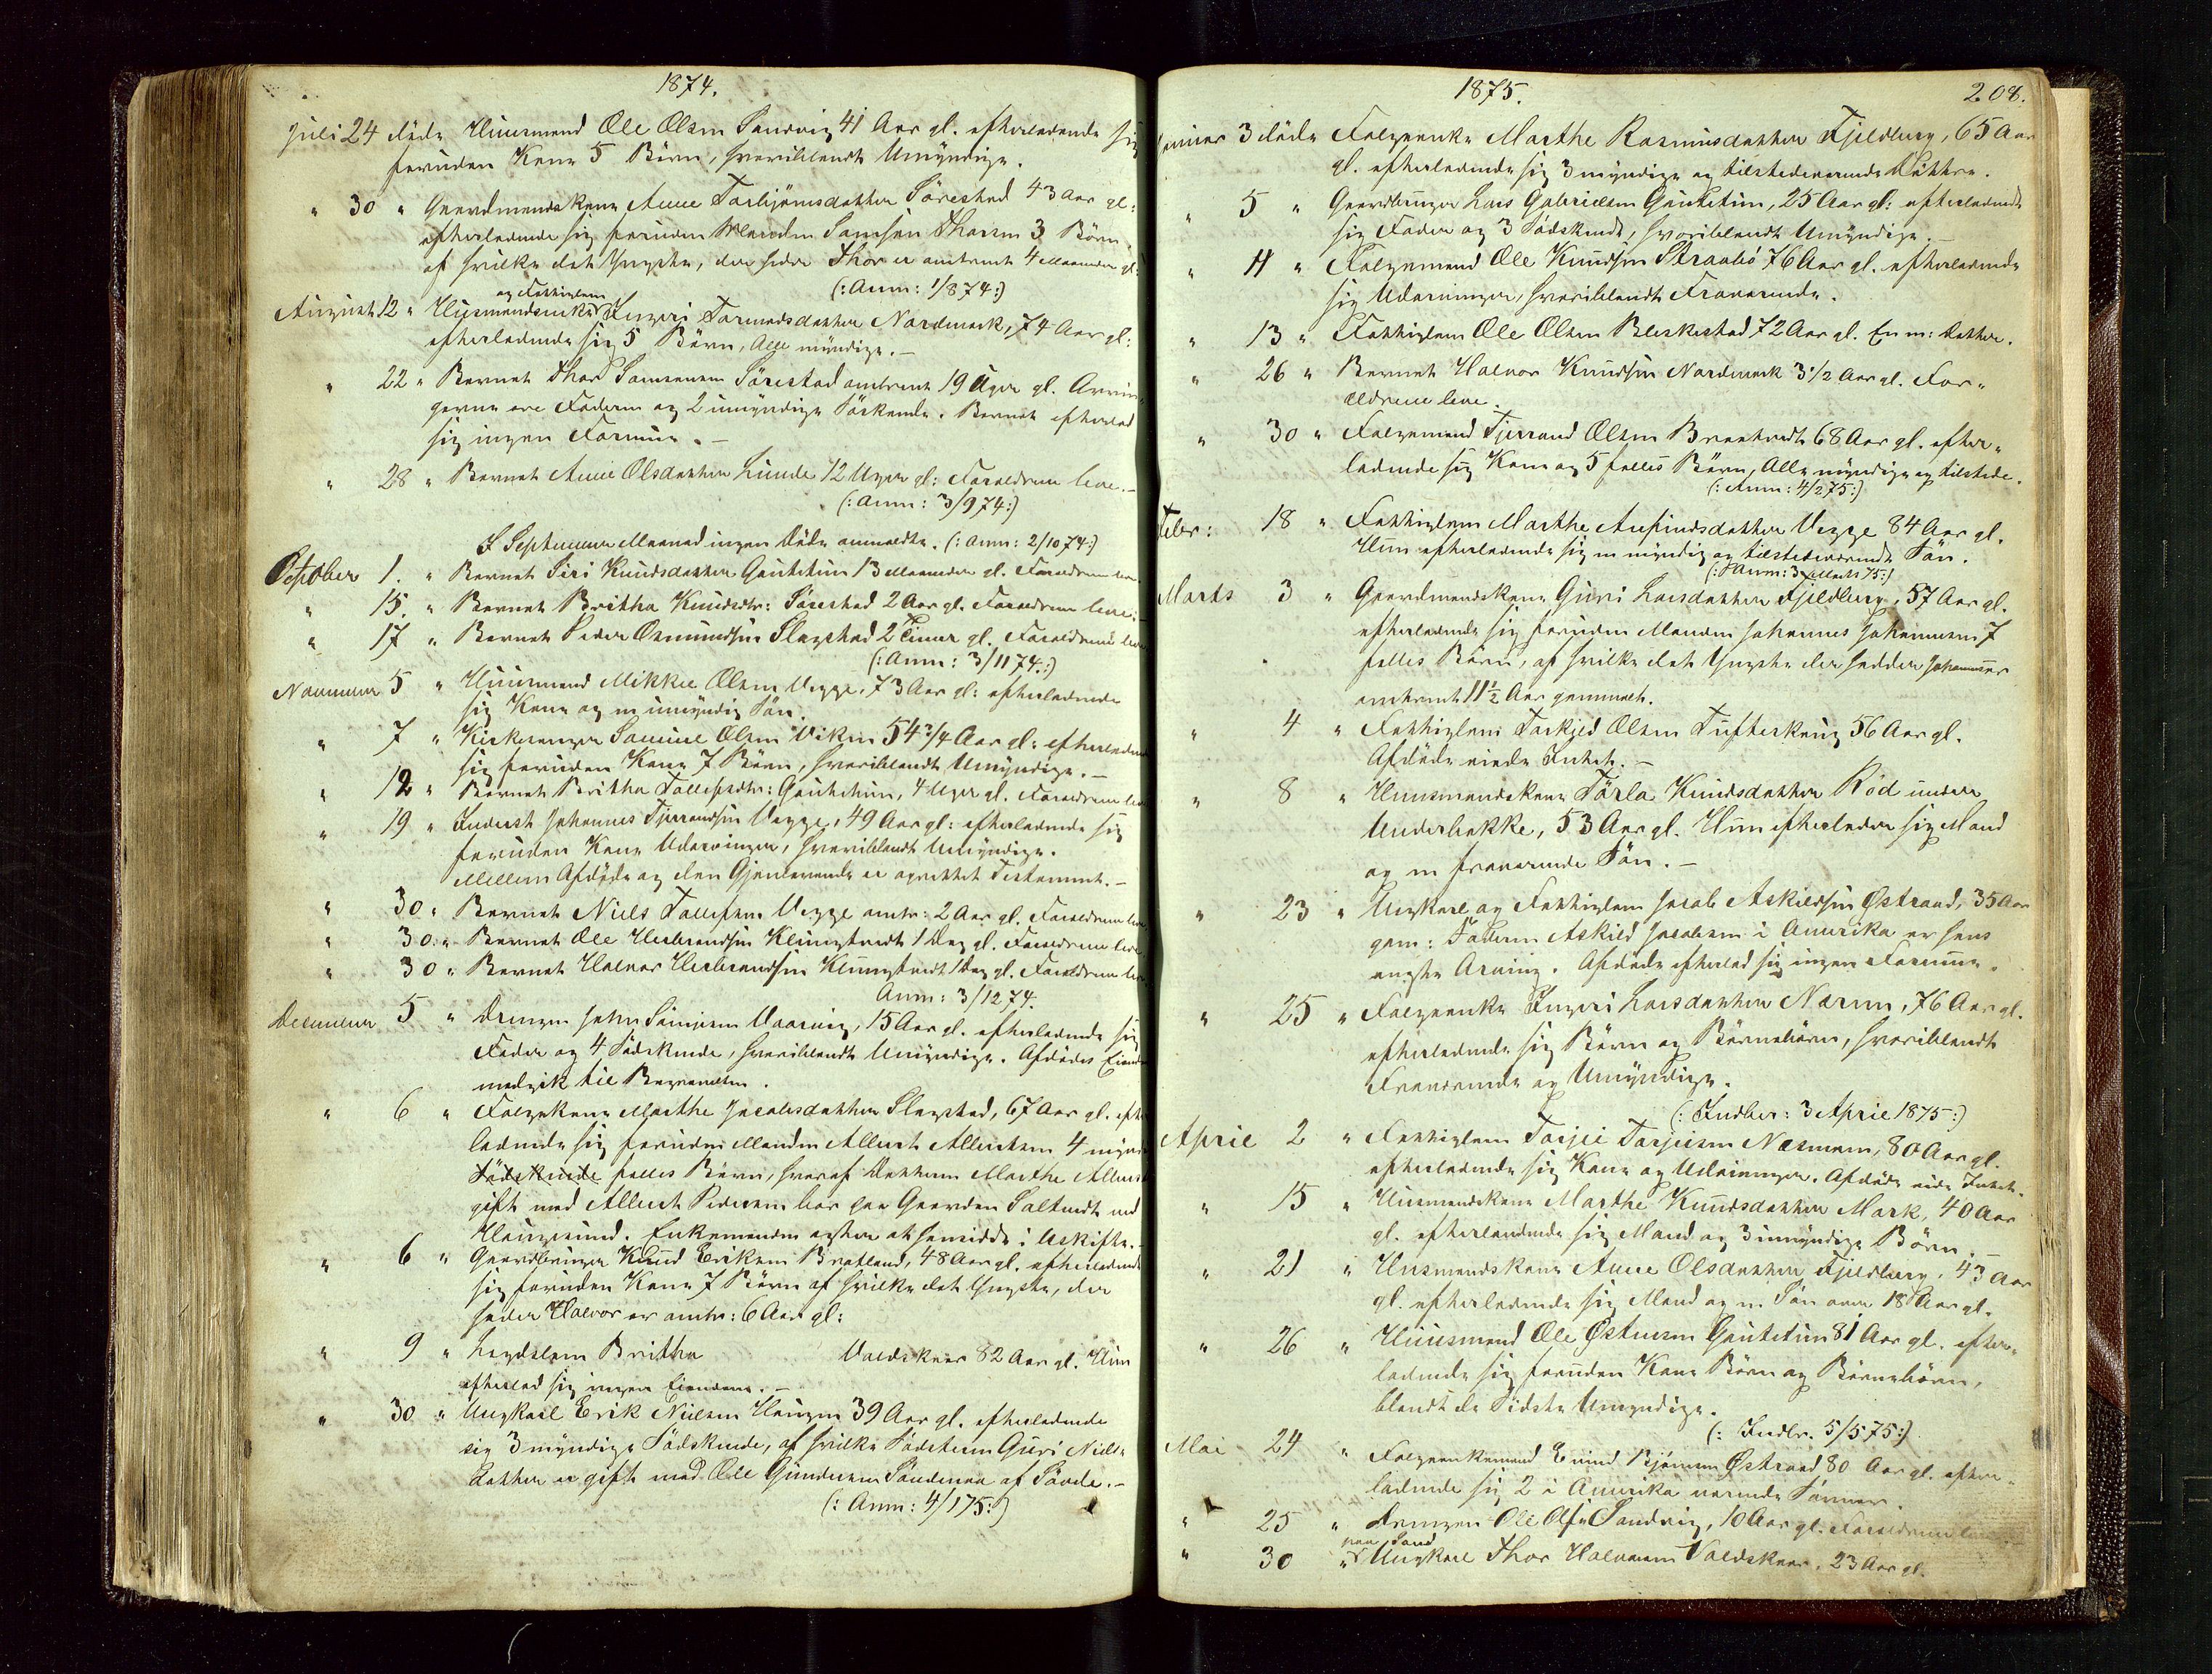 1874.
Juli 24 døde Huusmand Ole Olsen Sandvig 41 Aar gl. efterladende sig
foruden Kone 5 Børn, hvoriblandt Umyndige.
" 30 " Gaardmandskone Anne Torbjørnsdatter Sørestad 43 Aar gl:
efterladende sig foruden Manden Samson Thorsen 3 Børn,
af hvilke det Yngste, der heder Thor er omtrent 4 Maaneder gl:
(: Anm: 1/8 74:)
og Fattiglem
August 12 " Husmandsenke Ingeri Tormodsdatter Nordmork, 74 Aar gl:
efterladende sig 5 Børn, Alle myndige. –
" 22 " Barnet Thor Samsonsen Sørestad omtrent 19 Uger gl. Arvin-
gerne ere Faderen og 2 umyndige Søskende. Barnet efterlod
sig ingen Formue. –
" 28 " Barnet Anne Olsdatter Lunde 12 Uger gl: Forældrene leve. –
(: Anm: 3/9 74:)
I September Maaned ingen Døde anmeldte. (: Anm: 2/10 74:)
October 1. " Barnet Siri Knudsdatter Gautetun 13 Maaneder gl. Forældrene leve
" 15. " Barnet Britha Knudsdtr: Sørestad 2 Aar gl. Forældrene leve.
" 17 " Barnet Peder Osmundsen Slagstad 2 Timer gl. Forældrene leve
(: Anm: 3/11 74.:)
November 5 " Huusmand Mikkel Olsen Vegge, 73 Aar gl: efterladende
sig Kone og en umyndig Søn.
" 7 " Kirkesanger Samuel Olsen Viken 54 3/4 Aar gl: efterladende
sig foruden Kone 7 Børn, hvoriblandt Umyndige. –
" 12 " Barnet Britha Tollefsdtr: Gautetun, 4 Uger gl. Forældrene leve
" 19 " Inderst Johannes Tjerrandsen Vegge, 49 Aar gl: efterladende sig
foruden Kone Udarvinger, hvoriblandt Umyndige.
Mellem Afdøde og den Gjenlevende er oprettet Testament. –
" 30 " Barnet Niels Tollefsen Vegge omtr: 2 Aar gl. Forældrene leve
" 30 " Barnet Ole Herbrandsen Klungtvedt 1 Dag gl. Forældrene leve
" 30 " Barnet Halvor Herbrandsen Klungtvedt 1 Dag gl. Forældrene leve
Anm: 3/12 74.
December 5 " Drengen John Simonsen Vaaring, 15 Aar gl. efterladende sig
Fader og 4 Sødskende, hvoriblandt Umyndige. Afdødes Eiendom
medgik til Begravelsen.
" 6 " Folgekone Marthe Jacobsdatter Slagstad, 67 Aar gl. efter
ladende sig foruden Manden Allert Allertsen 4 myndige
Sødskende fælles Børn, hvoraf Datteren Marthe Allerts
gift med Allert Pedersen bor paa Gaarden Saltvedt ved
Haugesund. Enkemanden agter at hensidde i Uskifte. –
" 6 " Gaardbruger Knud Eriksen Bratland, 48 Aar gl. efterladende
sig foruden Kone 7 Børn af hvilke det Yngste, der
heder Halvor er omtr: 6 Aar gl:
" 9 " Lægdslem Britha Valdskaar 82 Aar gl. Hun
efterlod sig ingen Eiendom. –
" 30 " Ungkarl Erik Nielsen Haugen 39 Aar gl. efterladende
sig 3 myndige Sødskende, af hvilke Søsteren Guri Niels-
datter er gift med Ole Gundersen Søndenaa af Søvde. –
(: Anm: 4/1 75:)
1875. 208.
Januar 3 døde Folgeenke Marthe Rasmusdatter Fjeldberg, 65 Aar
gl. efterladende sig 3 myndige og tilstedeværende Døttre.
" 5 " Gaardbruger Lars Gabrielsen Gautetun, 25 Aar gl: efterladende
sig Fader og 3 Sødskende, hvoriblandt Umyndige. –
" 11 " Folgemand Ole Knudsen Straabø 76 Aar gl. efterladende
sig Udarvinger, hvoriblandt Fraværende.
" 13 " Fattiglem Ole Olsen Bleskestad 72 Aar gl. En m: Datter.
" 26 " Barnet Halvor Knudsen Nordmork 3 1/2 Aar gl. For-
ældrene leve.
" 30 " Folgemand Tjerrand Olsen Braatvedt 68 Aar gl. efter-
ladende sig Kone og 5 fælles Børn, Alle myndige og tilstede.
(: Anm: 4/2 75:)
Febr: 18 " Fattiglem Marthe Arfindsdatter Vegge 84 Aar gl.
Hun efterladende sig en myndig og tilstedeværende Søn.
(: Anm: 3 Marts 75:)
Marts 3 " Gaardmandskone Guri Larsdatter Fjeldberg, 57 Aar gl.
efterladende sig foruden Manden Johannes Johannesen 7
fælles Børn, af hvilke det Yngste der hedder Johannes er
omtrent 11 1/2 Aar gammelt.
" 4 " Fattiglem Torkjel Olsen Tufteskoug 56 Aar gl.
Afdøde eiede Intet. –
" 8 " Huusmandskone Torla Knudsdatter Rød under
Underbakke, 53 Aar gl. Hun efterlader sig Mand
og en fraværende Søn. –
" 23 " Ungkarl og Fattiglem Jacob Askildsen Østraad, 35 Aar
gam: Faderen Askild Jacobsen i Amerika er hans
eneste Arving. Afdøde efterlod sig ingen Formue.
" 25 " Folgeenke Ingeri Larsdatter Nærum, 76 Aar gl.
efterladende sig Børn og Børnebørn, hvoriblandt
Fraværende og Umyndige.
(: Indber: 3 April 1875:)
April 2 " Fattiglem Torjei Torjeisen Næsmoen, 80 Aar gl.
efterladende sig Kone og Udarvinger. Afdøde eide Intet.
" 15 " Huusmandskone Marthe Knudsdatter Mork, 40 Aar
gl. efterladende sig Mand og 3 umyndige Børn. –
" 21 " Husmandskone Anne Olsdatter Fjeldberg, 43 Aar
gl. efterladende sig Mand og en Søn over 18 Aar gl.
" 26 " Huusmand Ole Østensen Gautetun 81 Aar gl. efter-
ladende sig foruden Kone Børn og Børnebørn,
blandt de Sidste Umyndige.
(: Indbr. 5/5 75:)
Mai 24 " Folgeenkemand Eivind Bjørnsen Østraad 80 Aar gl. efter-
ladende sig 2 i Amerika værende Sønner.
" 25 " Drengen Ole Olsen Sandvig, 10 Aar gl. Forældrene
paa Sand
" 30 " Ungkarl Thor Halvorsen Valdskaar, 23 Aar gl.